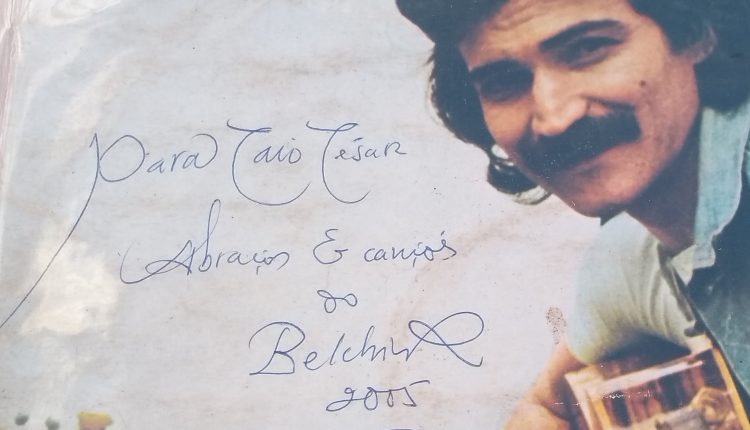 Para Caio César
Abraços & canções
do
Belchior
2005